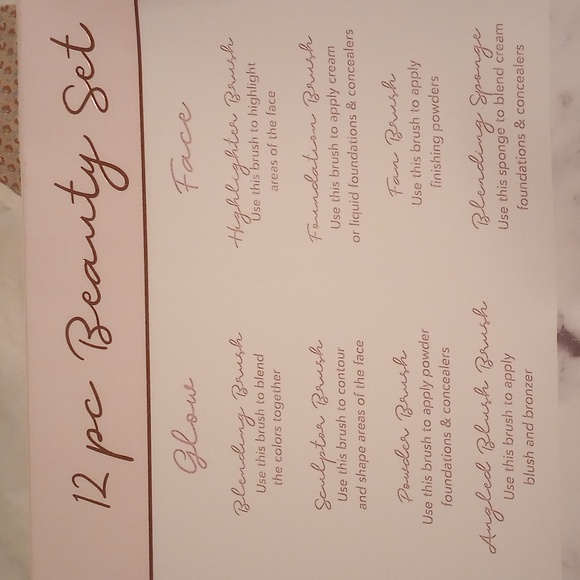 12 pc Beauty Set
Glow
Blending Brush
Use this brush to blend
the colors together
Sculptor Brush
Use this brush to contour
and shape areas of the face
Powder Brush
Use this brush to apply powder
foundations & concealers
Angled Blush Brush
Use this brush to apply
blush and bronzer
Face
Highlighter Brush
Use this brush to highlight
areas of the face
Foundation Brush
Use this brush to apply cream
or liquid foundations & concealers
Fan Brush
Use this brush to apply
finishing powders
Blending Sponge
Use this sponge to blend cream
foundations & concealers